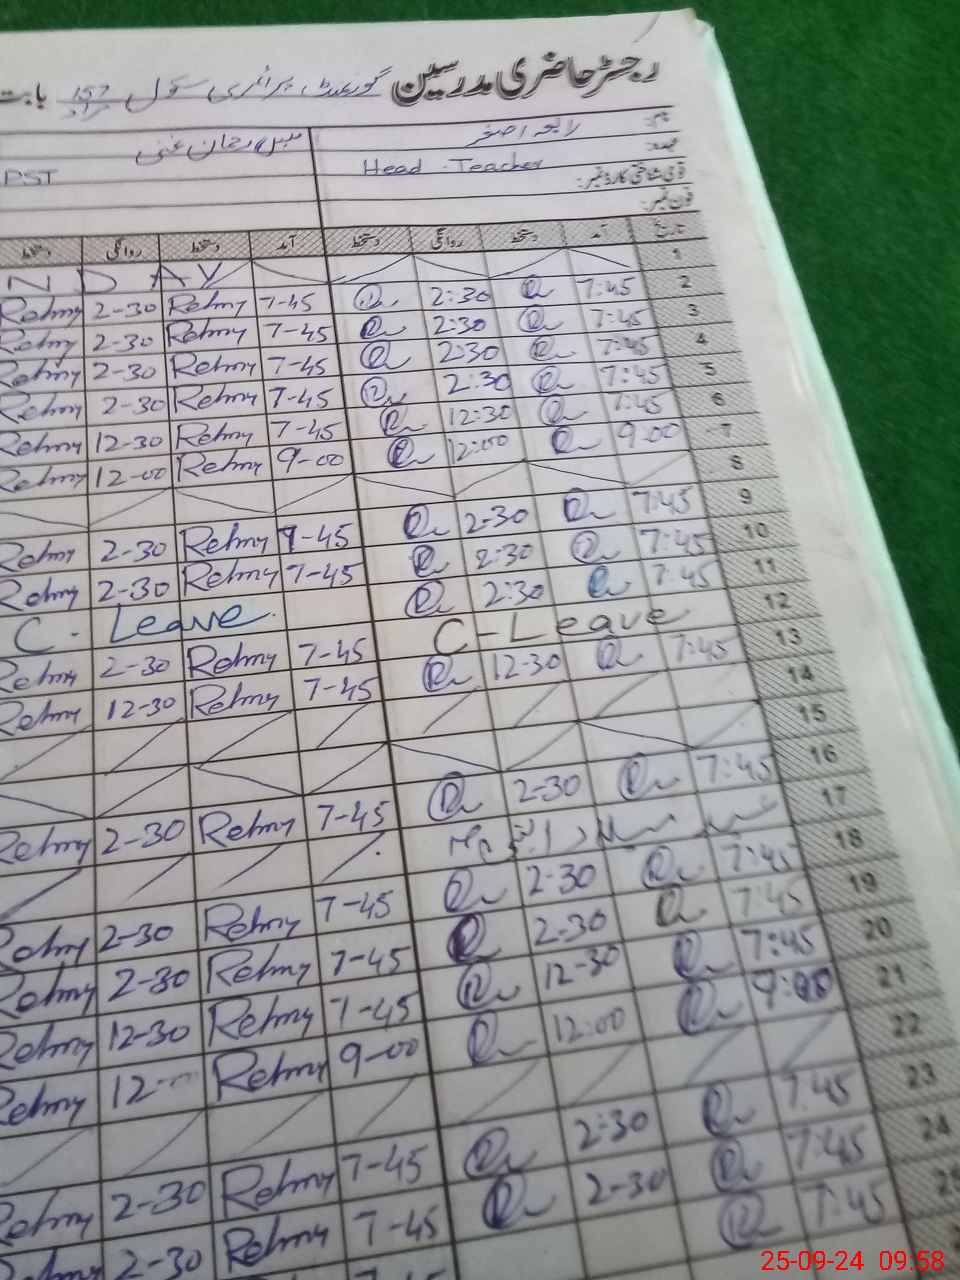 رجسٹر حاضری مدرسین گورنمنٹ پرائمری سکول 157 بابت
نام:
عہدہ: Head Teacher PST
قومی شناختی کارڈ نمبر:
فون نمبر:
تاریخ آمد دستخط روانگی دستخط آمد دستخط روانگی دستخط
1 N D A Y
2 7:45 2:30 7-45 Rehmy 2-30 Rehmy
3 7:45 2:30 7-45 Rehmy 2-30 Rehmy
4 7:45 2:30 7-45 Rehmy 2-30 Rehmy
5 7:45 2:30 7-45 Rehmy 2-30 Rehmy
6 7:45 12:30 7-45 Rehmy 12-30 Rehmy
7 9-00 12:00 9-00 Rehmy 12-00 Rehmy
8
9 7:45 2-30 7-45 Rehmy 2-30 Rehmy
10 7:45 2:30 7-45 Rehmy 2-30 Rehmy
11 7:45 2:30 C. Leave
12 C-Leave 7-45 Rehmy 2-30 Rehmy
13 7:45 12-30 7-45 Rehmy 12-30 Rehmy
14
15
16 7:45 2-30 7-45 Rehmy 2-30 Rehmy
17
18 7:45 2-30 7-45 Rehmy 2-30 Rehmy
19 7:45 2-30 7-45 Rehmy 2-30 Rehmy
20 7:45 12-30 7-45 Rehmy 12-30 Rehmy
21 9:00 12:00 9-00 Rehmy 12- Rehmy
22
23 7:45 2:30 7-45 Rehmy 2-30 Rehmy
24 7:45 2-30 7-45 Rehmy 2-30 Rehmy
25 7:45
25-09-24 09:58